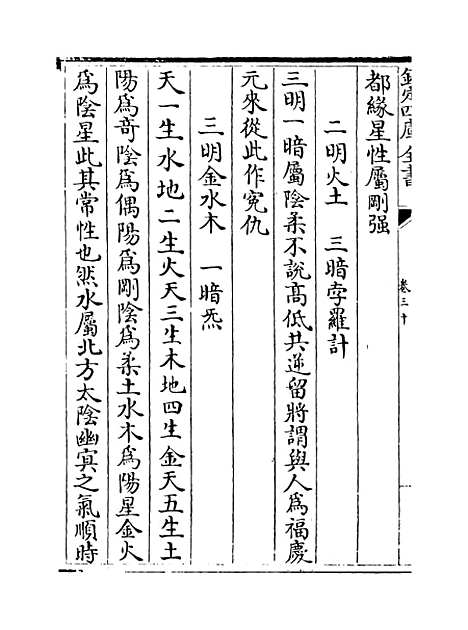 欽定四庫全書
卷三十
都緣星性屬剛强
二明火土　三暗孛羅計
三明一暗屬陰柔不說髙低共逆留將謂與人為福慶
元來從此作寃仇
三明金水木　一暗炁
天一生水地二生火天三生木地四生金天五生土
陽為竒陰為偶陽為剛陰為柔土水木為陽星金火
為陰星此其常性也然水屬北方太陰幽冥之氣順時